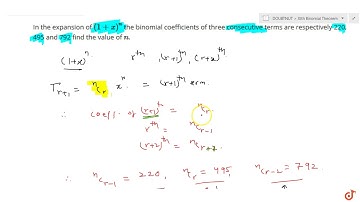 DOUBTNUT > XIth Binomial Theorem
In the expansion of (1 + x)^n the binomial coefficients of three consecutive terms are respectively 220,
495 and 792 find the value of n.
(1+x)^n r^th, (r+1)^th, (r+2)^th
T_{r+1} = ^nC_r x^n = (r+1)^th term.
∴ coeff. of (r+1)^th = ^nC_r.
r^th = ^nC_{r-1}
(r+2)^th = ^nC_{r+2}
∴ ^nC_{r-1} = 220, ^nC_r = 495, ^nC_{r-2} = 792